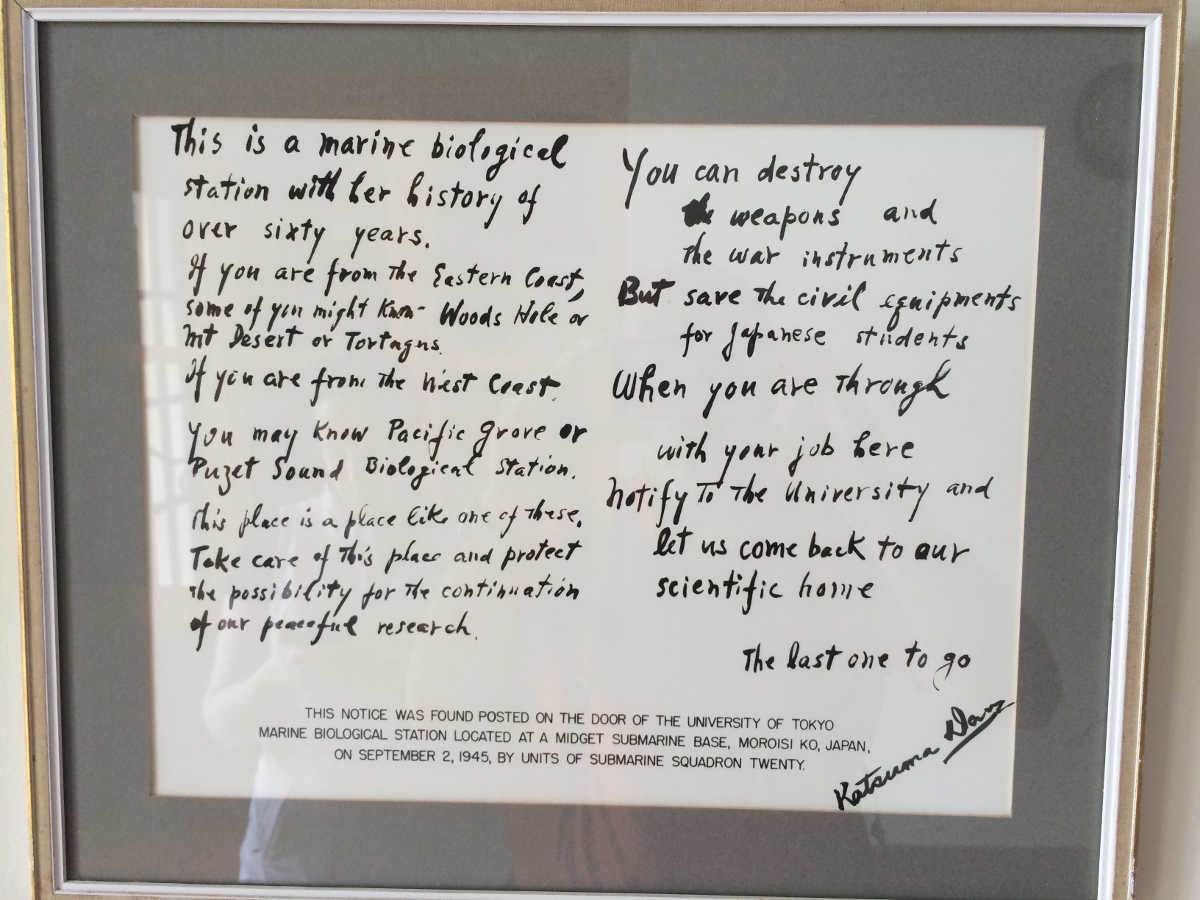 This is a marine biological
station with her history of
over sixty years.
If you are from the Eastern Coast,
some of you might know Woods Hole or
Mt Desert or Tortugas.
If you are from the West Coast.
You may know Pacific Grove or
Puget Sound Biological Station.
This place is a place like one of these.
Take care of this place and protect
the possibility for the continuation
of our peaceful research.
You can destroy
the weapons and
the war instruments
But save the civil equipments
for Japanese students
When you are through
with your job here
Notify to the University and
let us come back to our
scientific home
The last one to go
Katsuma Dan
THIS NOTICE WAS FOUND POSTED ON THE DOOR OF THE UNIVERSITY OF TOKYO
MARINE BIOLOGICAL STATION LOCATED AT A MIDGET SUBMARINE BASE, MOROISI KO, JAPAN,
ON SEPTEMBER 2, 1945, BY UNITS OF SUBMARINE SQUADRON TWENTY.